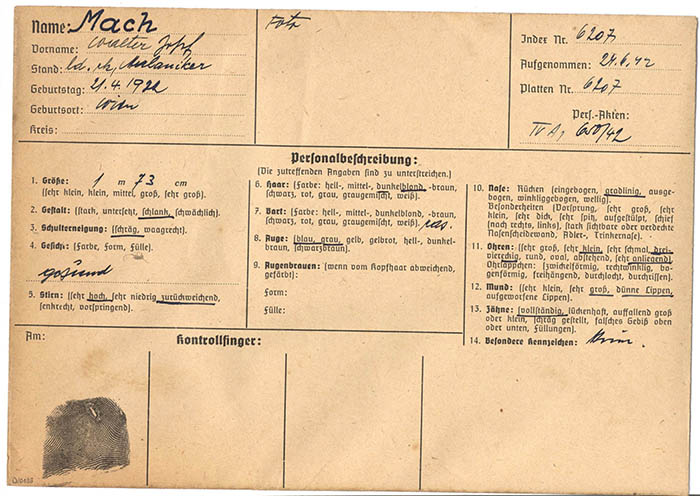 Name: Mach
Vorname: Walter Josef
Stand: ld. rk. Mechaniker
Geburtstag: 21.4.1922
Geburtsort: Wien
Kreis:
Foto
Index Nr. 6207
Aufgenommen: 24.6.42
Platten Nr. 6207
Pers.-Akten:
IV A, 600/42
Personalbeschreibung:
(Die zutreffenden Angaben sind zu unterstreichen.)
1. Größe: 1 m 73 cm
(sehr klein, klein, mittel, groß, sehr groß).
2. Gestalt: (stark, untersetzt, schlank, schwächlich).
3. Schulterneigung: (schräg, waagrecht).
4. Gesicht: (Farbe, Form, Fülle).
gesund
5. Stirn: (sehr hoch, sehr niedrig zurückweichend,
senkrecht, vorspringend).
6. Haar: (Farbe: hell-, mittel-, dunkelblond, -braun,
schwarz, rot, grau, graugemischt, weiß).
7. Bart: (Farbe: hell-, mittel-, dunkelblond, -braun,
schwarz, rot, grau, graugemischt, weiß). ras.
8. Auge: (blau, grau, gelb, gelbrot, hell-, dunkel-
braun, schwarzbraun).
9. Augenbrauen: (wenn vom Kopfhaar abweichend,
gefärbt):
Form:
Fülle:
10. Nase: Rücken (eingebogen, gradlinig, ausge-
bogen, winkliggebogen, wellig).
Besonderheiten (Vorsprung, sehr groß, sehr
klein, sehr dick, sehr spitz, aufgestülpt, schief
(nach rechts, links), stark sichtbare oder verdeckte
Nasenscheidewand, Adler-, Trinkernase).
11. Ohren: (sehr groß, sehr klein, sehr schmal, drei-
viereckig, rund, oval, abstehend, sehr anliegend)
Ohrläppchen: (zwickelförmig, rechtwinklig, bo-
genförmig, freihängend, durchlocht, durchrissen).
12. Mund: (sehr klein, sehr groß, dünne Lippen,
aufgeworfene Lippen).
13. Zähne: (vollständig, lückenhaft, auffallend groß
oder klein, schräg gestellt, falsches Gebiß oben
oder unten, Füllungen).
14. Besondere Kennzeichen:
Am:
Kontrollfinger: